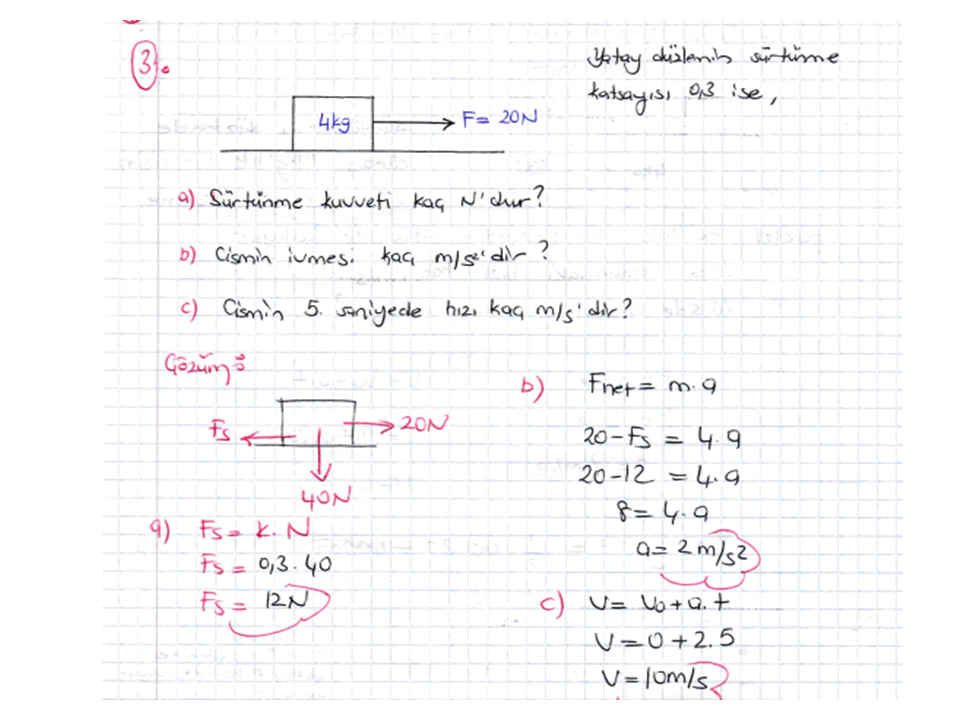 3.
Yatay düzlemin sürtünme
katsayısı 0,3 ise,
4kg
F= 20N
a) Sürtünme kuvveti kaç N'dur?
b) Cismin ivmesi kaç m/s²'dir?
c) Cismin 5. saniyede hızı kaç m/s'dir?
Çözüm:
Fs
20N
40N
a) Fs = k.N
Fs = 0,3.40
Fs = 12N
b) Fnet = m.a
20-Fs = 4.a
20-12 = 4.a
8 = 4.a
a = 2 m/s2
c) V = Vo + a.t
V = 0 + 2.5
V = 10m/s